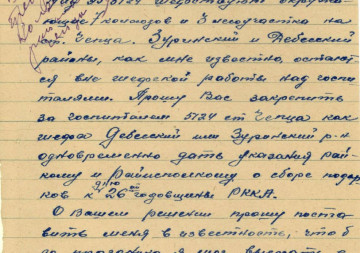 5724 шефствуют окружаю-
щие 7 колхозов и 3 лесоучастка на
ст. Чепца. Зуринский и Дебесский
районы, как мне известно, остают-
ся вне шефской работы над госпи-
талями. Прошу Вас закрепить
за госпиталем 5724 ст Чепца как
шефа Дебесский или Зуринский р-н
одновременно дать указания рай-
кому и райисполкому о сборе подар-
ков к дню 26ой годовщины РККА.
О Вашем решении прошу поста-
вить меня в известность, что б
я мог выехать